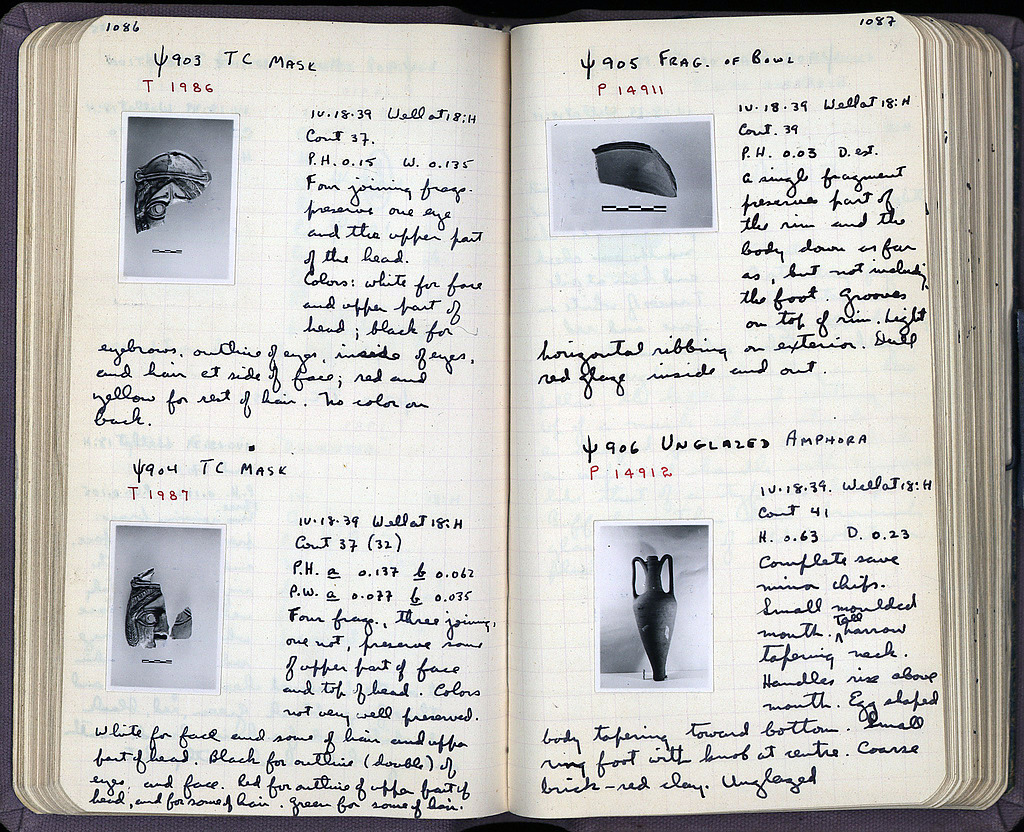 1086
Ψ903 TC MASK
T 1986
IV.18.39 Well at 18:H
Cont 37.
P.H. 0.15 W. 0.135
Four joining frags.
preserve one eye
and the upper part
of the head.
Colors: white for face
and upper part of
head; black for
eyebrows, outline of eyes, inside of eyes,
and hair at side of face; red and
yellow for rest of hair. No color on
back.
Ψ904 TC MASK
T 1987
IV.18.39 Well at 18:H
Cont 37 (32)
P.H. a 0.137 b 0.062
P.W. a 0.077 b 0.035
Four frags., three joining,
one not, preserve some
of upper part of face
and top of head. Colors
not very well preserved.
White for face and some of hair and upper
part of head. Black for outline (double) of
eyes, and face. Red for outline of upper part of
head, and for some of hair. Green for some of hair.
1087
Ψ905 FRAG. OF BOWL
P 14911
IV.18.39 Well at 18:H
Cont. 39
P.H. 0.03 D. est.
A single fragment
preserves part of
the rim and the
body down as far
as, but not including
the foot. Grooves
on top of rim. Light
horizontal ribbing on exterior. Dull
red glaze inside and out.
Ψ906 UNGLAZED AMPHORA
P 14912
IV.18.39. Well at 18:H
Cont 41
H. 0.63 D. 0.23
Complete save
minor chips.
Small moulded
mouth. Tall narrow
tapering neck.
Handles rise above
mouth. Egg shaped
body tapering toward bottom. Small
ring foot with knob at centre. Coarse
brick-red clay. Unglazed